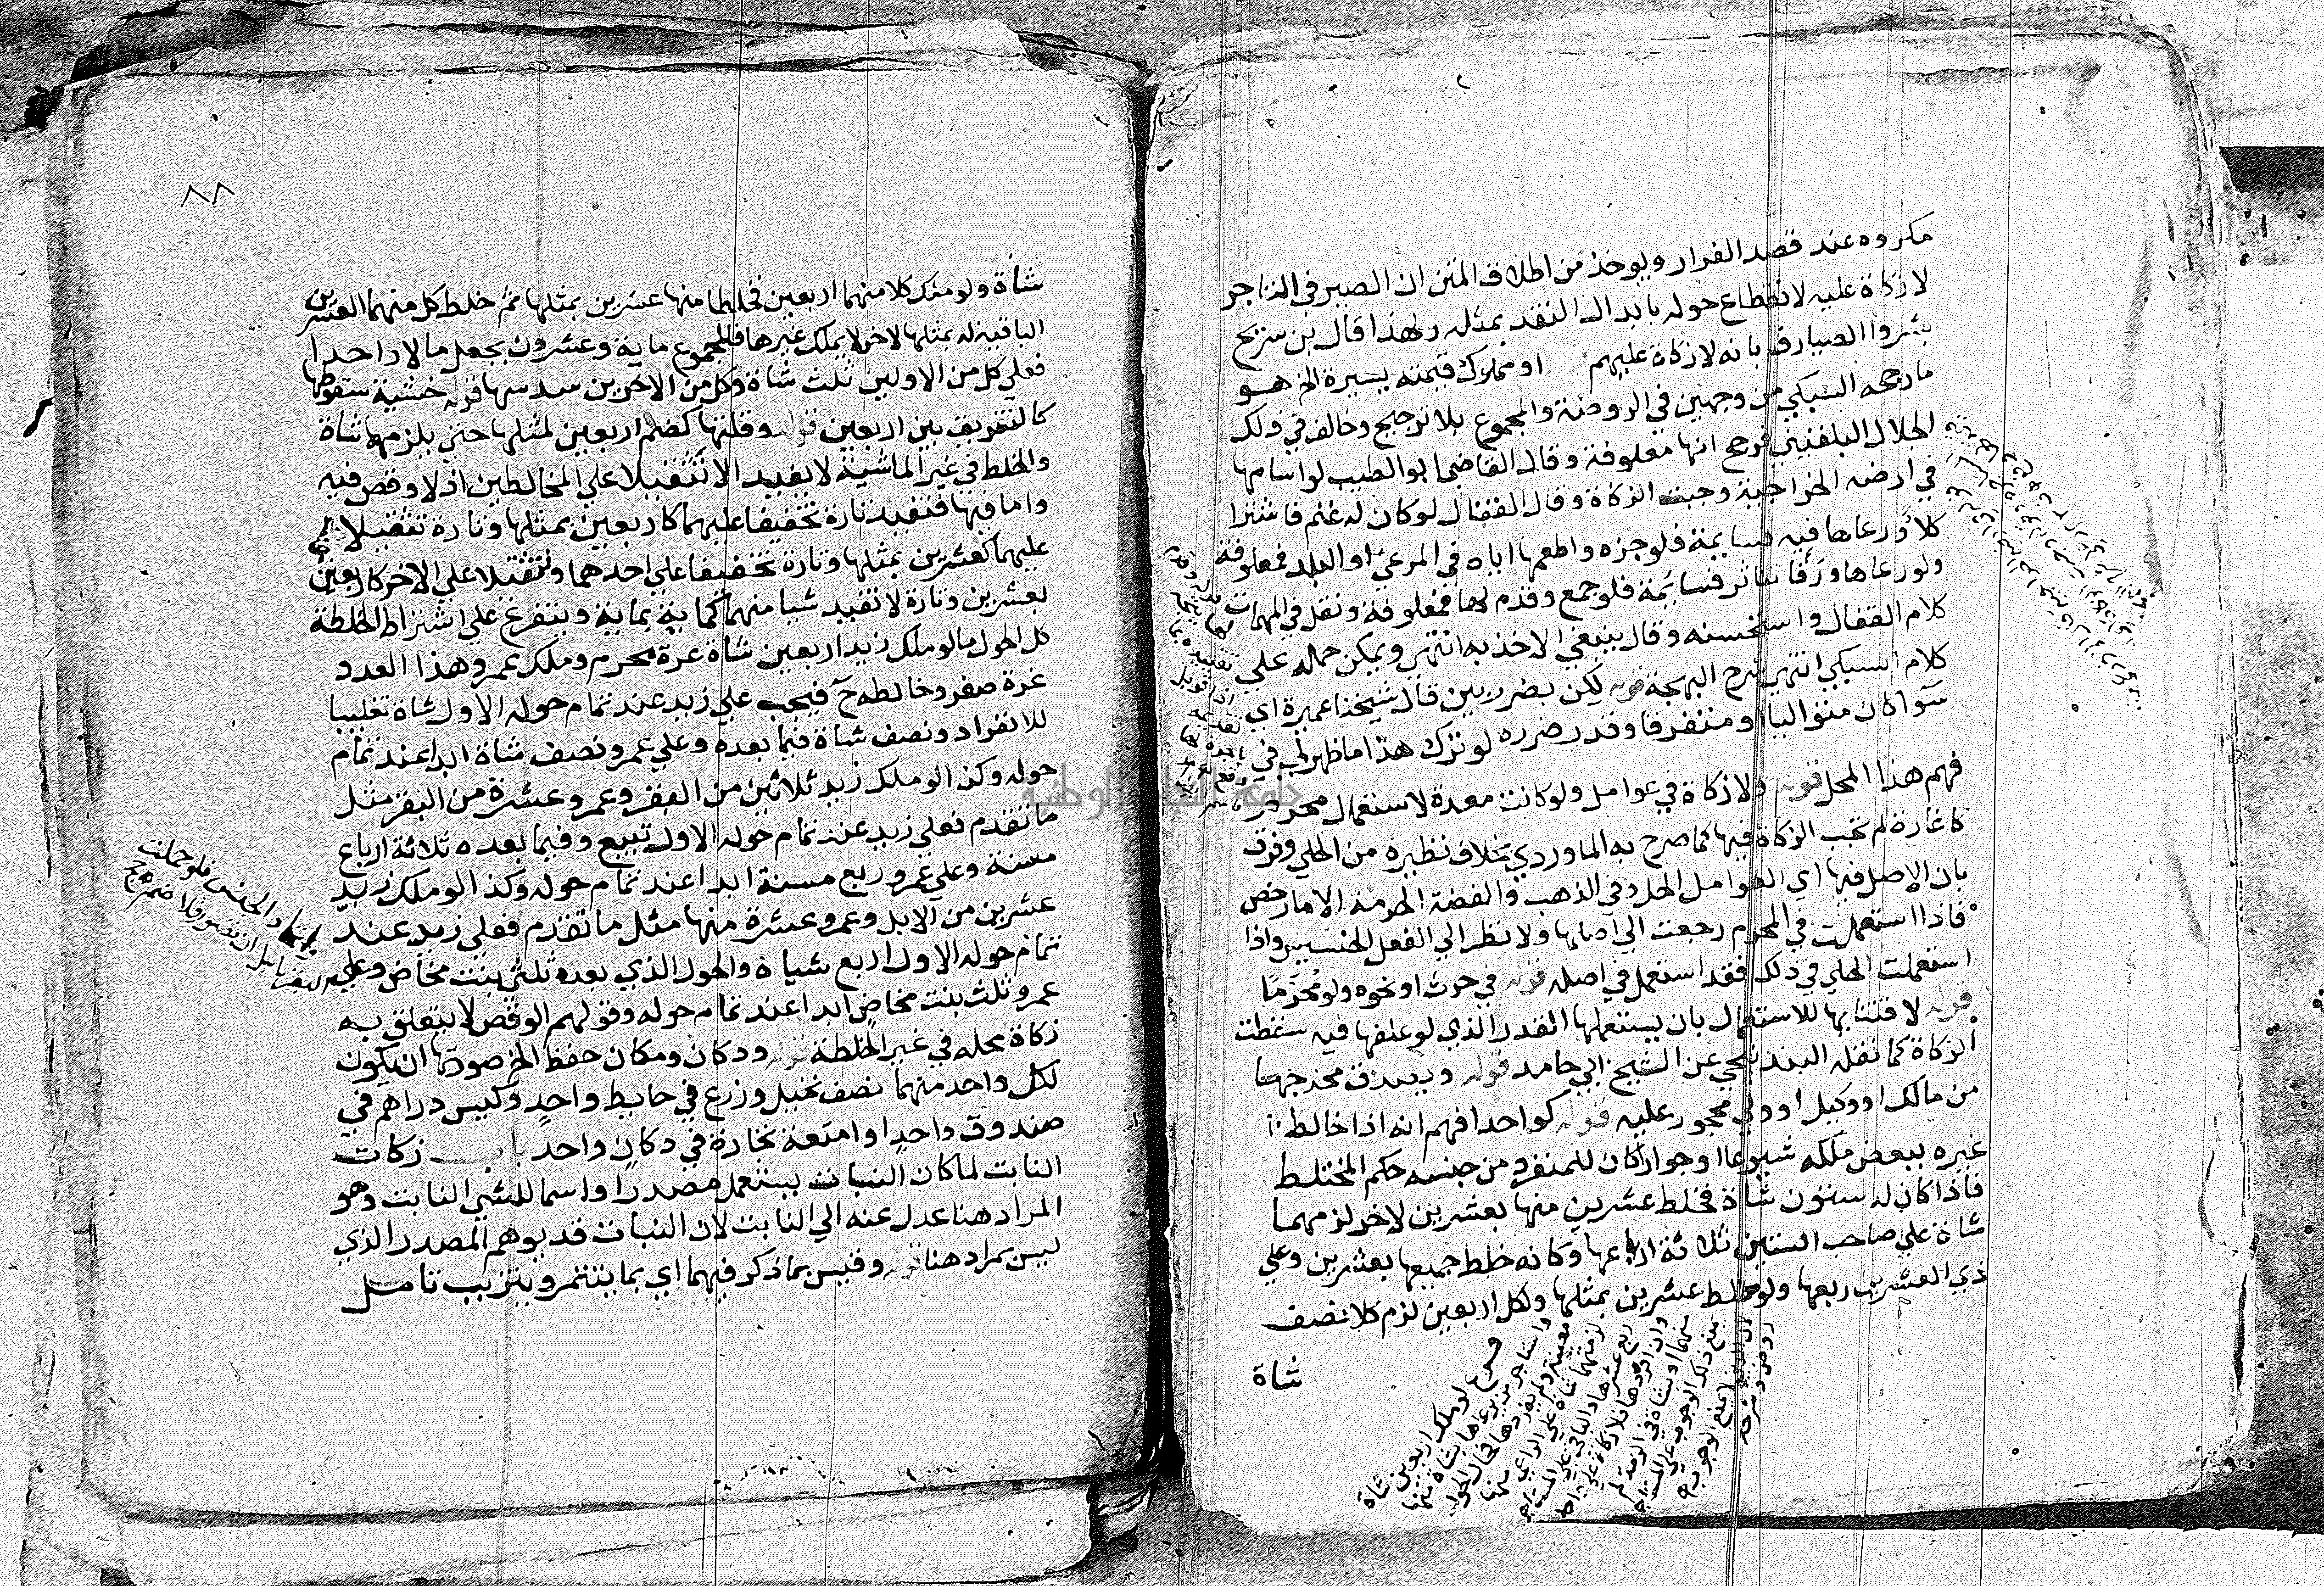 مكروه عند قصد الفرار ويوخذ من اطلاق المتن ان الصيرفي التاجر
لا زكاة عليه لانقطاع حوله بابدال النقد بمثله ولهذا قال بن سريج
بشروا الصيارف بانه لا زكاة عليهم او مملوك قيمته يسيرة الخ هو
ما رجحه السبكي من وجهين في الروضة والمجموع بلا ترجيح وخالف في ذلك
الجلال البلقيني فرجح انها معلوفة وقال القاضي ابو الطيب لو اسامها
في ارضه الخراجية وجبت الزكاة وقال القفال لو كان له غنم فاشترا
كلاء ورعاها فيه فسايمة فلو جزه واطعمها اياه في المرعي او البلد فمعلوفة
ولو رعاها ورقا تناثر فسايمة فلو جمع وقدم لها فمعلوفة ونقل في المهمات
كلام القفال واستحسنه وقال ينبغي الاخذ به انتهي ويمكن حمله علي
كلام السبكي انتهي شرح البهجة قوله لكن بضرر بين قال شيخنا عميرة اي
سوآ كان متواليا او متفرقا وقدر ضرره لو ترك هذا ما ظهر لي في
فهم هذا المحل قوله ولا زكاة في عوامل ولو كانت معدة لاستعمال محرم
كاغارة لم تجب الزكاة فيها كما صرح به الماوردي بخلاف نظيره من الحلي وفرق
بان الاصل فيها اي العوامل الحل وفي الذهب والفضة الحرمة الا ما رخص
فاذا استعملت في المحرم رجعت الي اصلها ولا نظر الي الفعل الخسيس واذا
استعملت الحلي في ذلك فقد استعمل في اصله قوله في حرث او نحوه ولو محرما
قوله لاقتنايها للاستعمال بان يستعملها القدر الذي لو علفها فيه سقطت
الزكاة كما نقله البندنيجي عن الشيخ ابي حامد قوله ويصدق مخرجها
من مالك او وكيل او ولي محجور عليه قوله كواحد افهم انه اذا خالط
غيره ببعض ملكه شيوعا او جوار كان للمنفرد من جنسه حكم المختلط
فاذا كان له ستون شاة فخلط عشرين منها بعشرين لاخر لزمهما
شاة علي صاحب الستين ثلاثة ارباعها وكانه خلط جميعها بعشرين وعلي
ذي العشرين ربعها ولو خلط عشرين بمثلها ولكل اربعين لزم كلا نصف
شاة
فرع لو ملك اربعين شاة
واستاجر من يرعاها بشاة منها
معينة ولم يفردها فحال الحول
لزمتهما شاة علي الراعي منها
ربع عشرها والباقي علي المستاجر
وان افردها فلا زكاة علي واحد
منهما او بشاة في الذمة لم
يمنع ذلك الوجوب علي المستاجر
لان الدين لا يمنع الوجوب
روض وشرحه
٨٨
شاة ولو ملك كلا منهما اربعين فخلطا منها عشرين بمثلها ثم خلط كل منهما العشرين
الباقية له بمثلها لاخر لا يملك غيرها فالمجموع ماية وعشرون يجعل مالا واحدا
فعلي كل من الاولين ثلث شاة وكل من الاخرين سدسها قوله خشية سقوطها
كالتفريق بين اربعين قوله وقلتها كضم اربعين لمثلها حتي يلزمها شاة
والخلط في غير الماشية لا يفيد الا تثقيلا علي المخالطين اذ لا وقص فيه
واما فيها فتفيد تارة تخفيفا عليهما كاربعين بمثلها وتارة تثقيلا
عليهما كعشرين بمثلها وتارة تخفيفا علي احدهما وتثقيلا علي الاخر كاربعين
بعشرين وتارة لا تفيد شيا منهما كماية بماية ويتفرع علي اشتراط الخلطة
كل الحول ما لو ملك زيد اربعين شاة غرة محرم وملك عمرو هذا العدد
غرة صفر وخالطه ح فيجب علي زيد عند تمام حوله الاول شاة تغليبا
للانفراد ونصف شاة فيما بعده وعلي عمرو نصف شاة ابدا عند تمام
حوله وكذا لو ملك زيد ثلاثين من البقر وعمرو عشرة من البقر مثل
ما تقدم فعلي زيد عند تمام حوله الاول تبيع وفيما بعده ثلاثة ارباع
مسنة وعلي عمرو ربع مسنة ابدا عند تمام حوله وكذا لو ملك زيد
عشرين من الابل وعمرو عشرة منها مثل ما تقدم فعلي زيد عند
تمام حوله الاول اربع شياة والحول الذي بعده ثلثي بنت مخاض وعلي
عمرو ثلث بنت مخاض ابدا عند تمام حوله وقولهم الوقص لا يتعلق به
زكاة محله في غير الخلطة قوله ودكان ومكان حفظ الخ صورتها ان يكون
لكل واحد منهما نصف نخيل وزرع في حايط واحد وكيس دراهم في
صندوق واحد او امتعة تجارة في دكان واحد باب زكات
النابت لما كان النبات يستعمل مصدرا واسما للشي النابت وهو
المراد هنا عدل عنه الي النابت لان النبات قد يوهم المصدر الذي
ليس بمراد هنا قوله وقيس بما ذكر فيهما اي بما يتتمر ويتزبب تامل